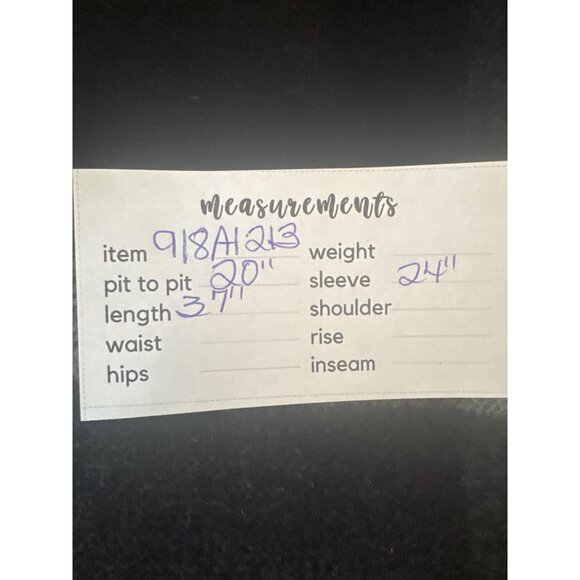 measurements
item 918A1213 weight
pit to pit 20" sleeve 24"
length 37" shoulder
waist rise
hips inseam